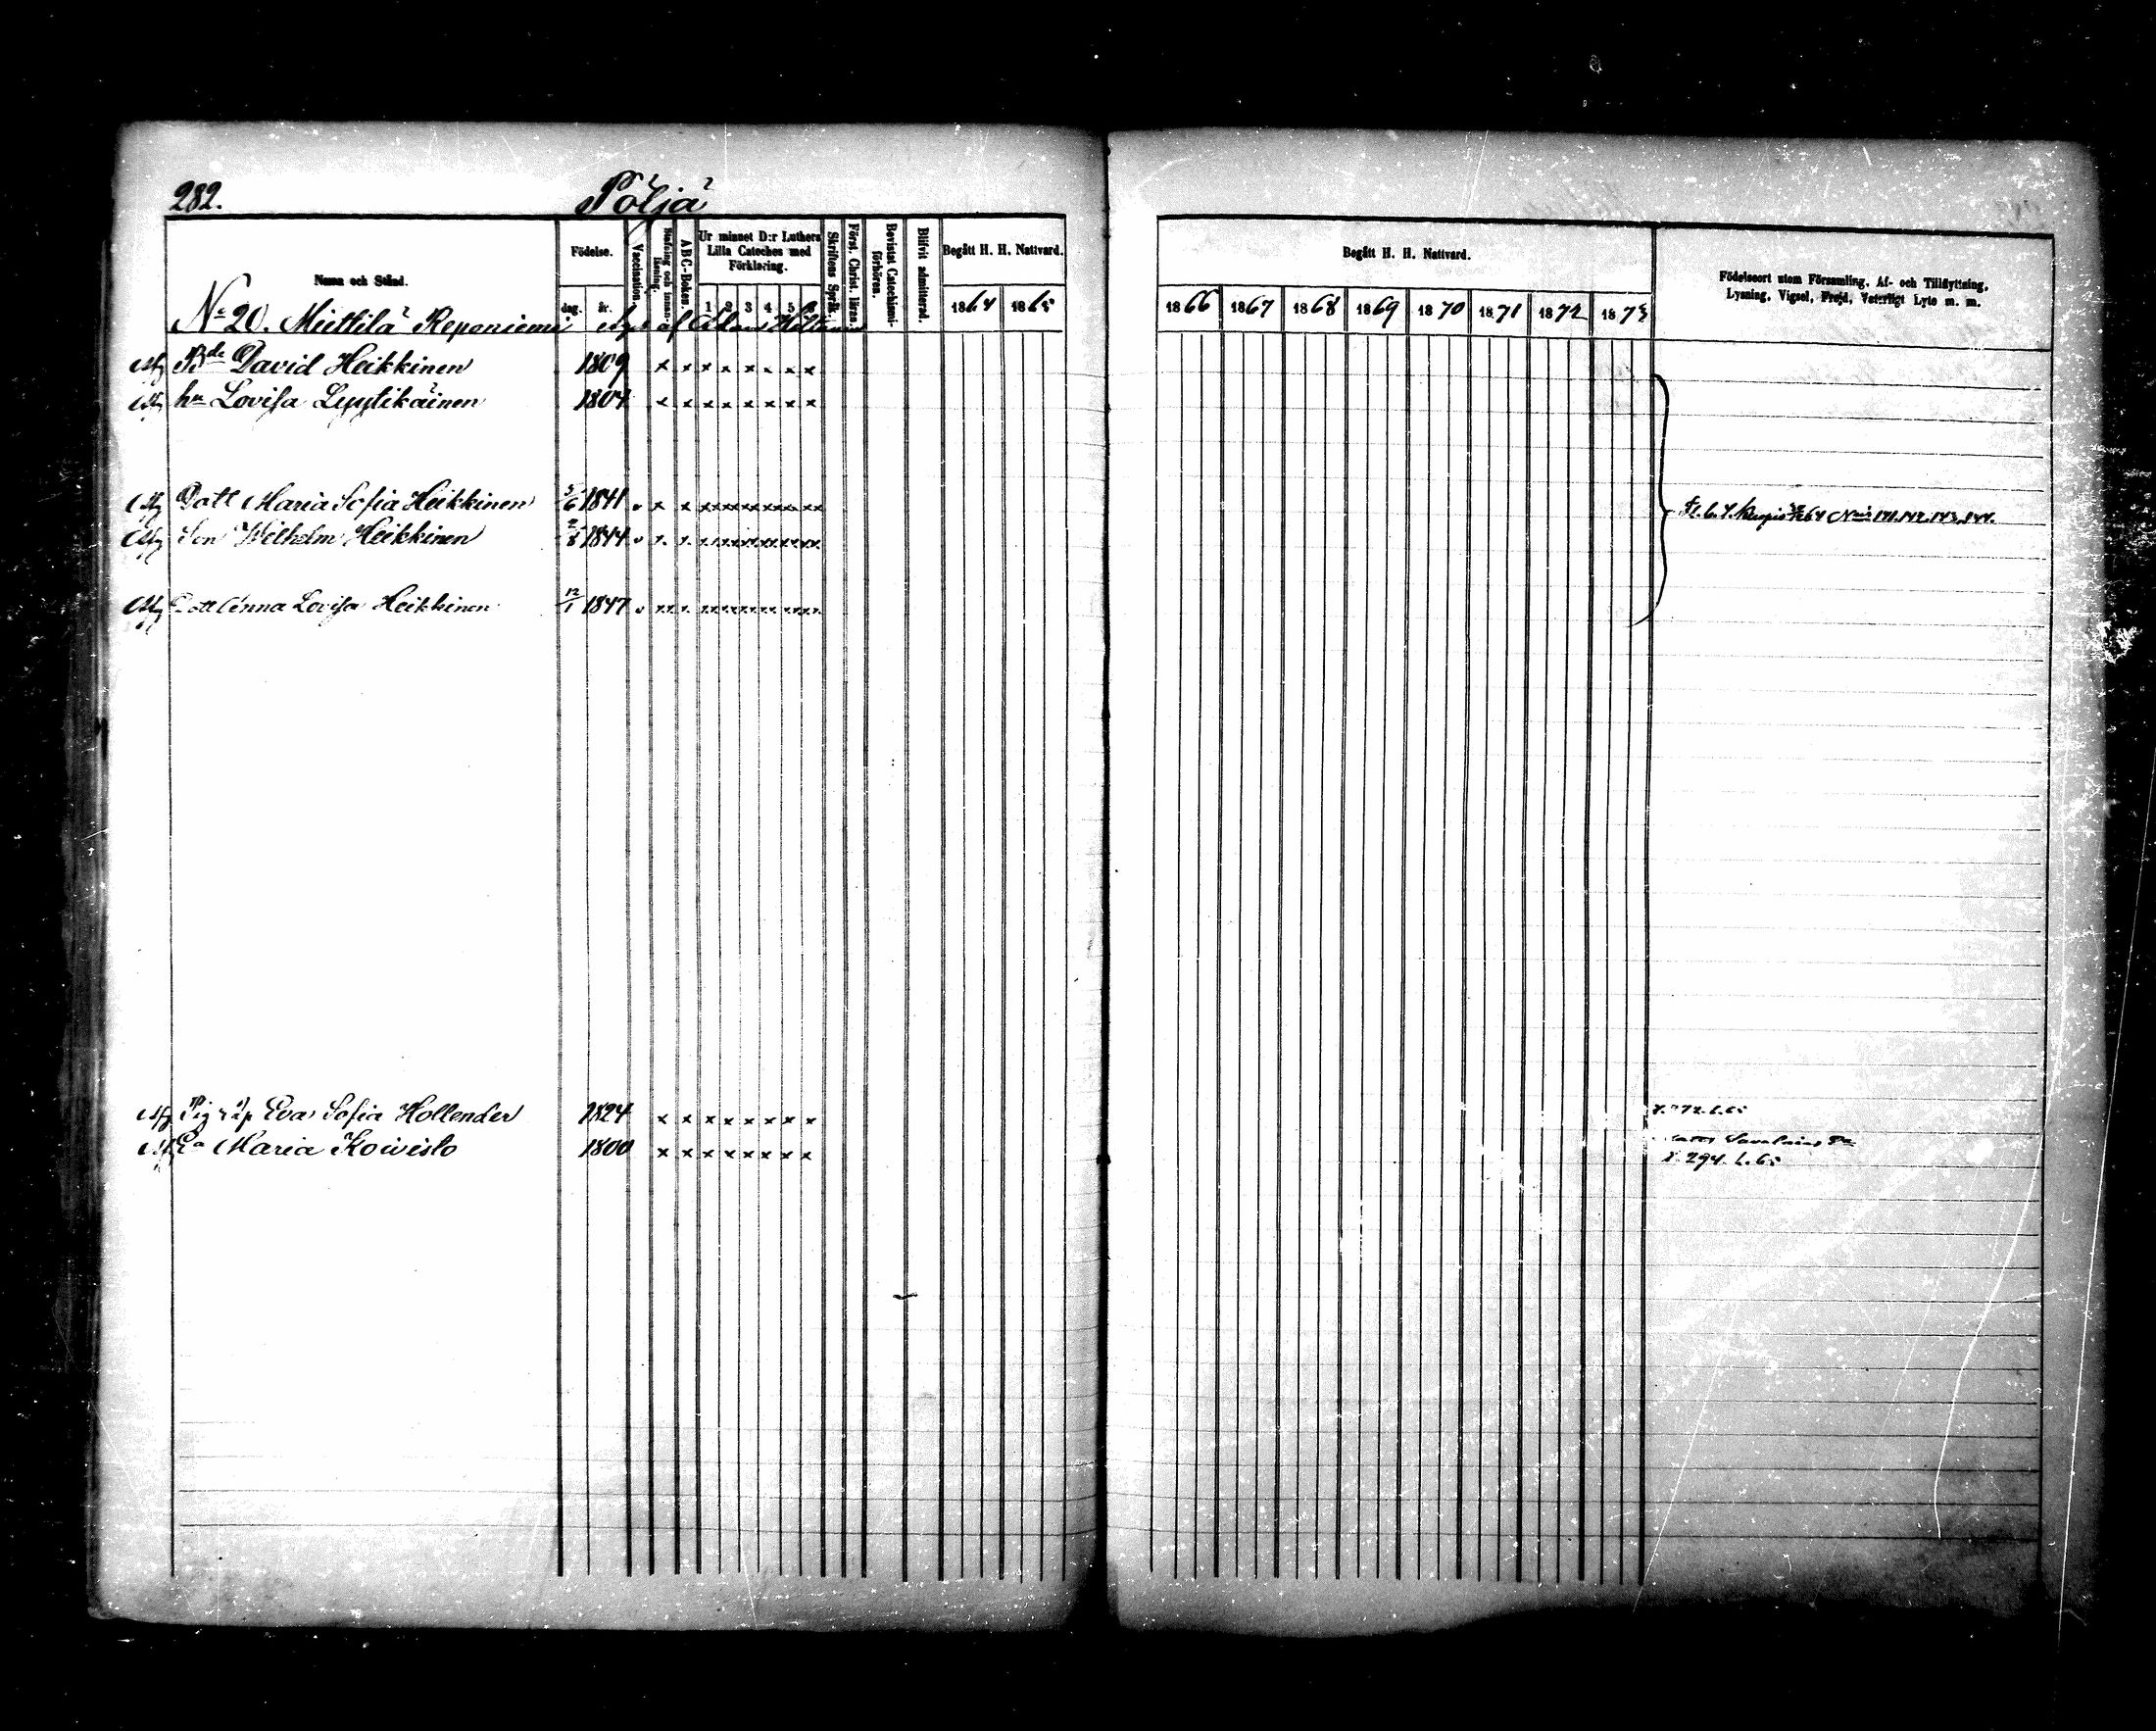 282.
Pöljä
Namn och Stånd.
Födelse.
dag.
år.
Vaccination.
Stafning och innan-läsning.
ABC-Boken.
Ur minnet D:r Luthers Lilla Cateches med Förklaring.
1 2 3 4 5
Skriftens Språk.
Först. Christ. lärna.
Bevistat Catechismi-förhören.
Blifvit admitterad.
Begått H. H. Nattvard.
1864 1865
Begått H. H. Nattvard.
1866 1867 1868 1869 1870 1871 1872 1873
Födelseort utom Församling, Af- och Tillflyttning,
Lysning, Vigsel, Frejd, Veterligt Lyte m. m.
No 20. Miettilä Reponiemi af Adam
Bde David Heikkinen 1809 x x x x x x x x
hu Lovisa Lyytikäinen 1804 x x x x x x x x
Dott Maria Sofia Heikkinen 5/6 1841
Son Wilhelm Heikkinen 2/8 1844
Dott Anna Lovisa Heikkinen 12/1 1847
Kuopio 64 141. 142. 143. 144.
Pig Eva Sofia Hollender 1824 x x x x x x x x
Maria Koivisto 1800 x x x x x x x x
294. 65